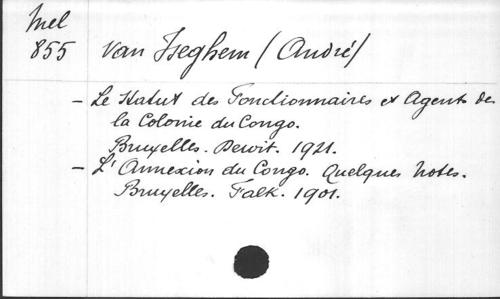 Mel
855 Van Iseghem (André)
- Le Statut des Fonctionnaires et Agents de
la Colonie du Congo.
Bruxelles. Dewit. 1921.
- L'Annexion du Congo. Quelques Notes.
Bruxelles. Falk. 1901.